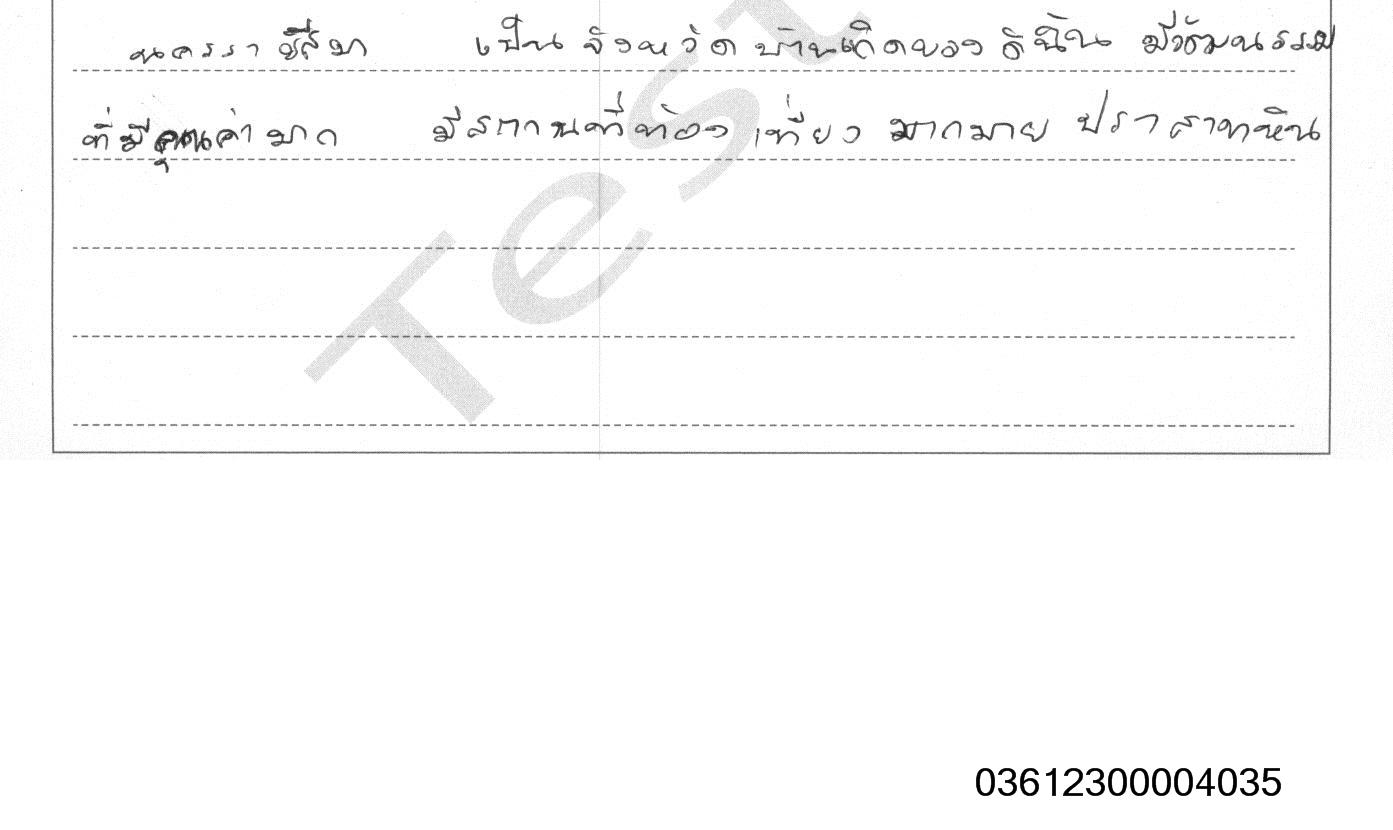 นครราชสีมา เป็นจังหวัดบ้านเกิดของดิฉัน มีวัฒนธรรม
ที่มีคุณค่ามาก มีสถานที่ท่องเที่ยวมากมาย ปราสาทหิน
Test
03612300004035